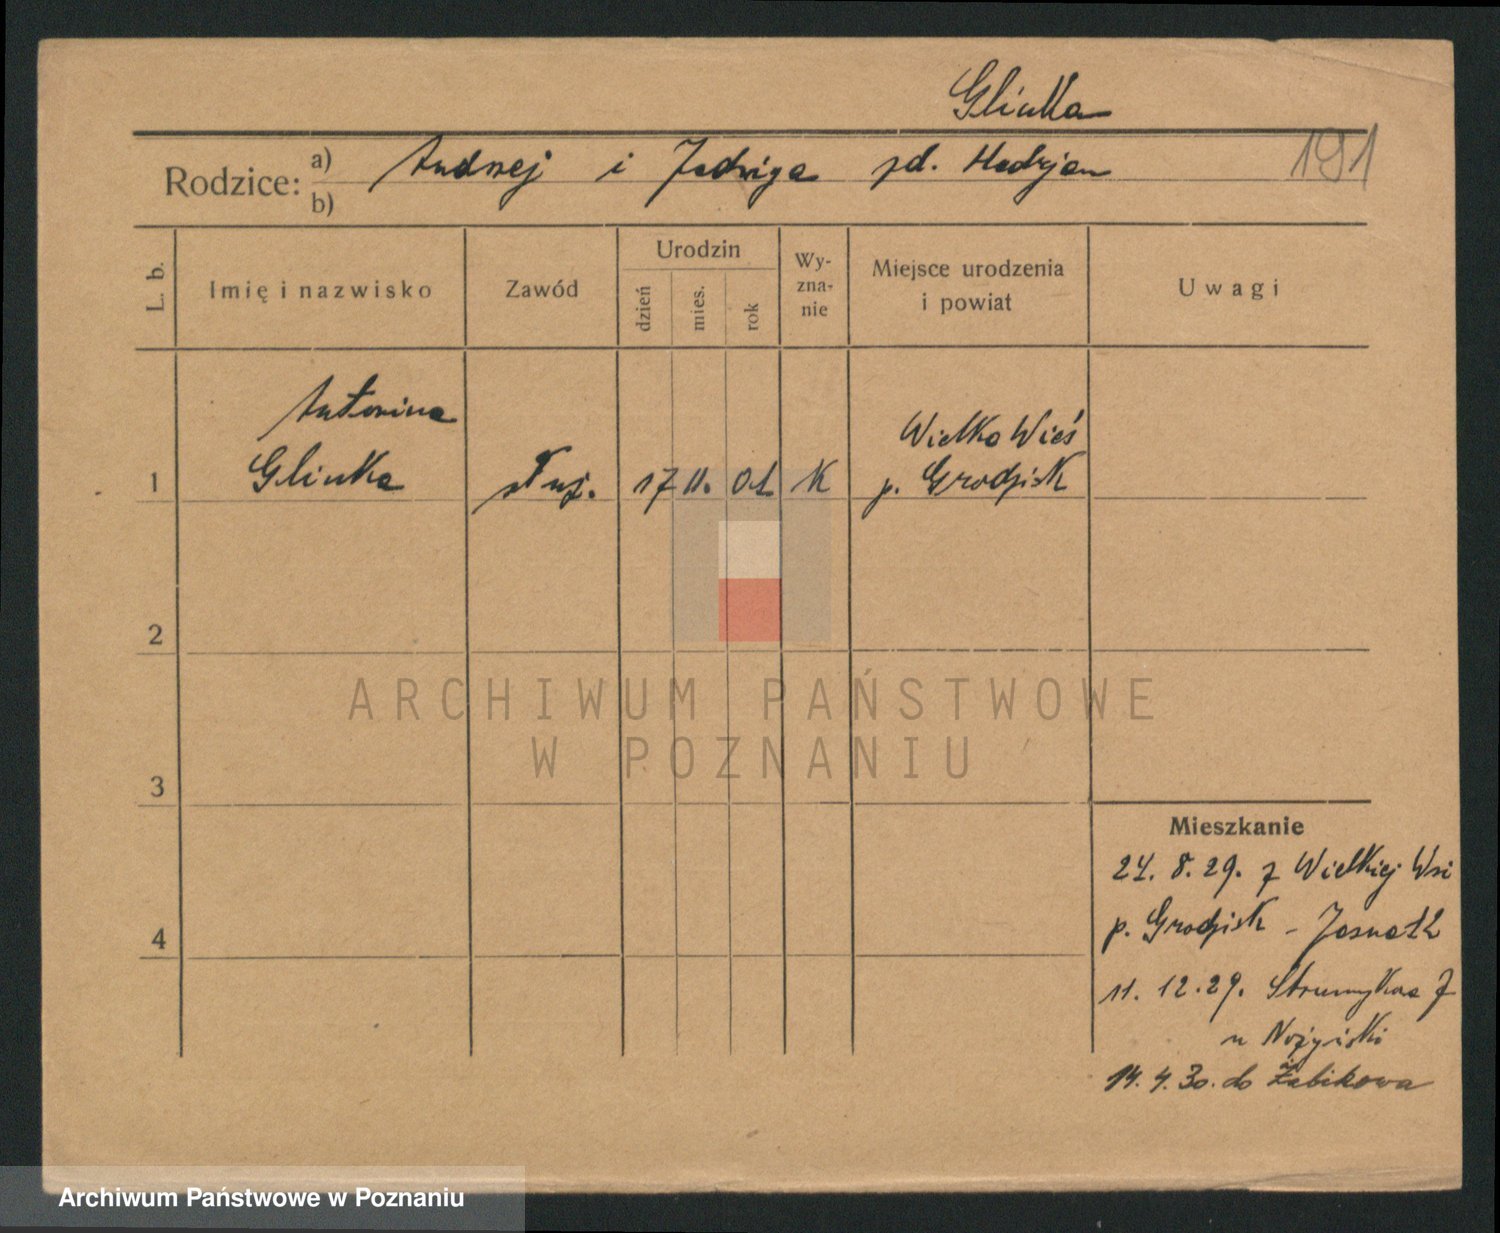 Glinka
191
Rodzice: a) Andrzej i Jadwiga zd.
b)
L. b.
Imię i nazwisko
Zawód
Urodzin
dzień
mies.
rok
Wy-
zna-
nie
Miejsce urodzenia
i powiat
Uwagi
Antonina
Glinka
1
służ.
17 11. 01
K
Wielka Wieś
p. Grodzisk
2
3
4
Mieszkanie
24. 8. 29. z Wielkiej Wsi
p. Grodzisk - Jasna 12
11. 12. 29. Strumykowa 7
u
14. 4. 30. do Żabikowa
ARCHIWUM PAŃSTWOWE
W POZNANIU
Archiwum Państwowe w Poznaniu